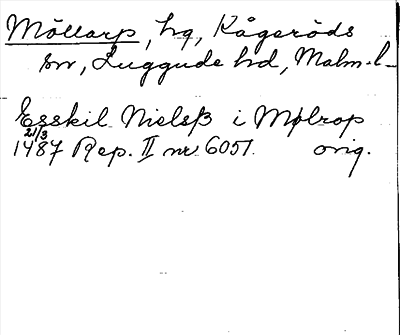 Möllarp, hg, Kågeröds
sn, Luggude hd, Malm. l.
Esskil Nielsß i Mølrop
21/3
1487 Rep. II nr 6051. orig.